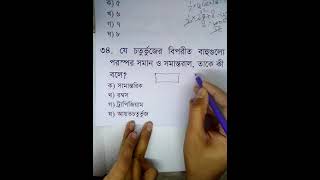 ক) ৫
খ) ৬
গ) ৭
ঘ) ৮
৩৪. যে চতুর্ভুজের বিপরীত বাহুগুলো
পরস্পর সমান ও সমান্তরাল, তাকে কী
বলে?
ক) সামান্তরিক
খ) রম্বস
গ) ট্রাপিজিয়াম
ঘ) আয়তচতুর্ভুজ